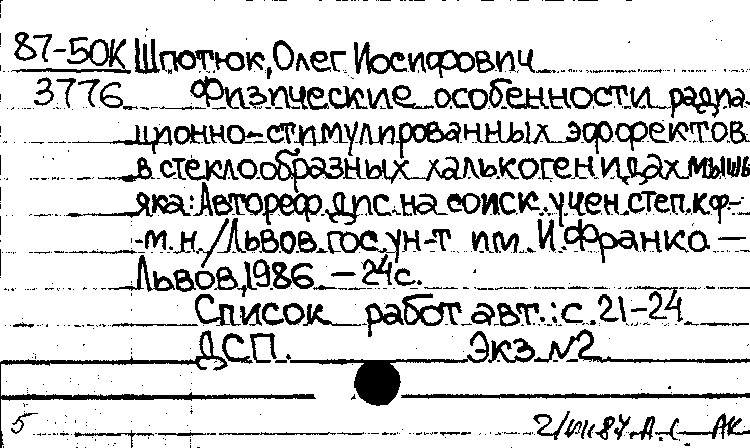 87-50К Шпотюк, Олег Иосифович
3776 Физические особенности радиа-
ционно-стимулированных эффектов
в стеклообразных халькогенидах мышь
яка: Автореф. дис. на соиск. учен. степ. к ф-
-м. н. / Львов. гос. ун-т им. И. Франко. —
Львов, 1986. — 24 с.
Список работ авт.: с. 21-24
ДСП. Экз. №2
5